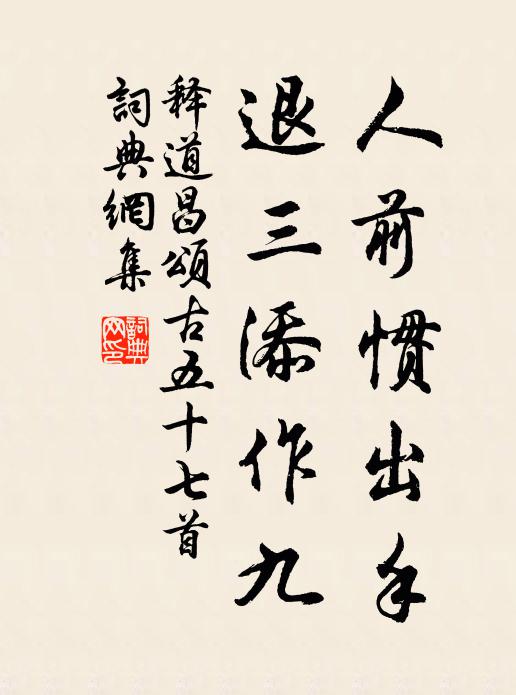 人前惯出手
退三添作九
释道昌颂古五十七首
詞典網集
詞典网印